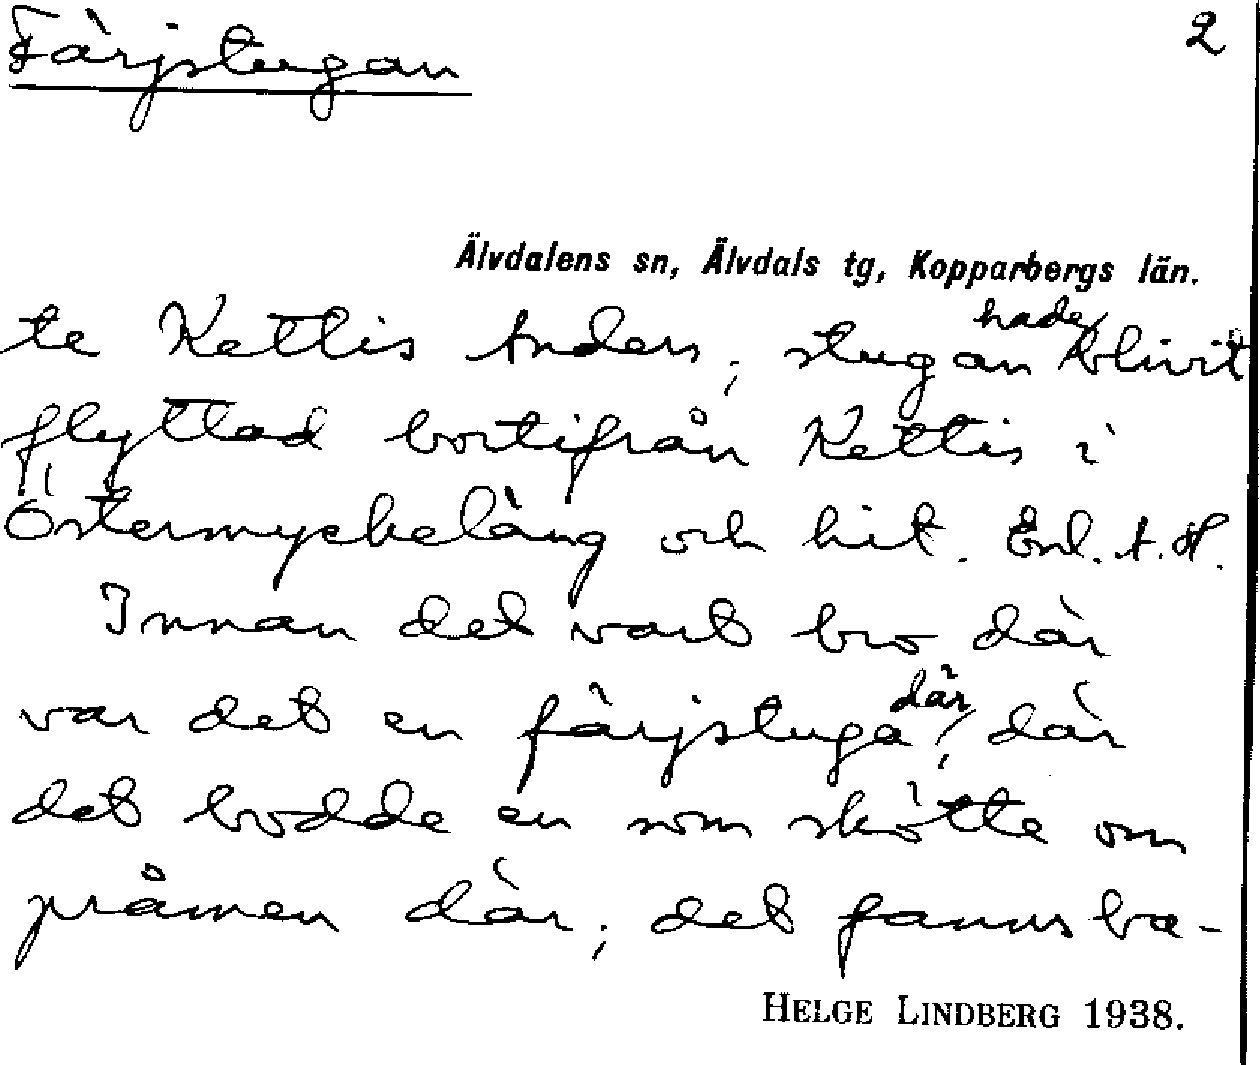 Färjstugan 2
Älvdalens sn, Älvdals tg, Kopparbergs län.
te Kettis Anders; stugan hade blivit
flyttad bortifrån Kettis i
Östermyckeläng och hit. Enl. A. H.
Innan det vart bro där
var det en färjstuga där, där
det bodde en som skötte om
pråmen där; det fanns ba-
HELGE LINDBERG 1938.